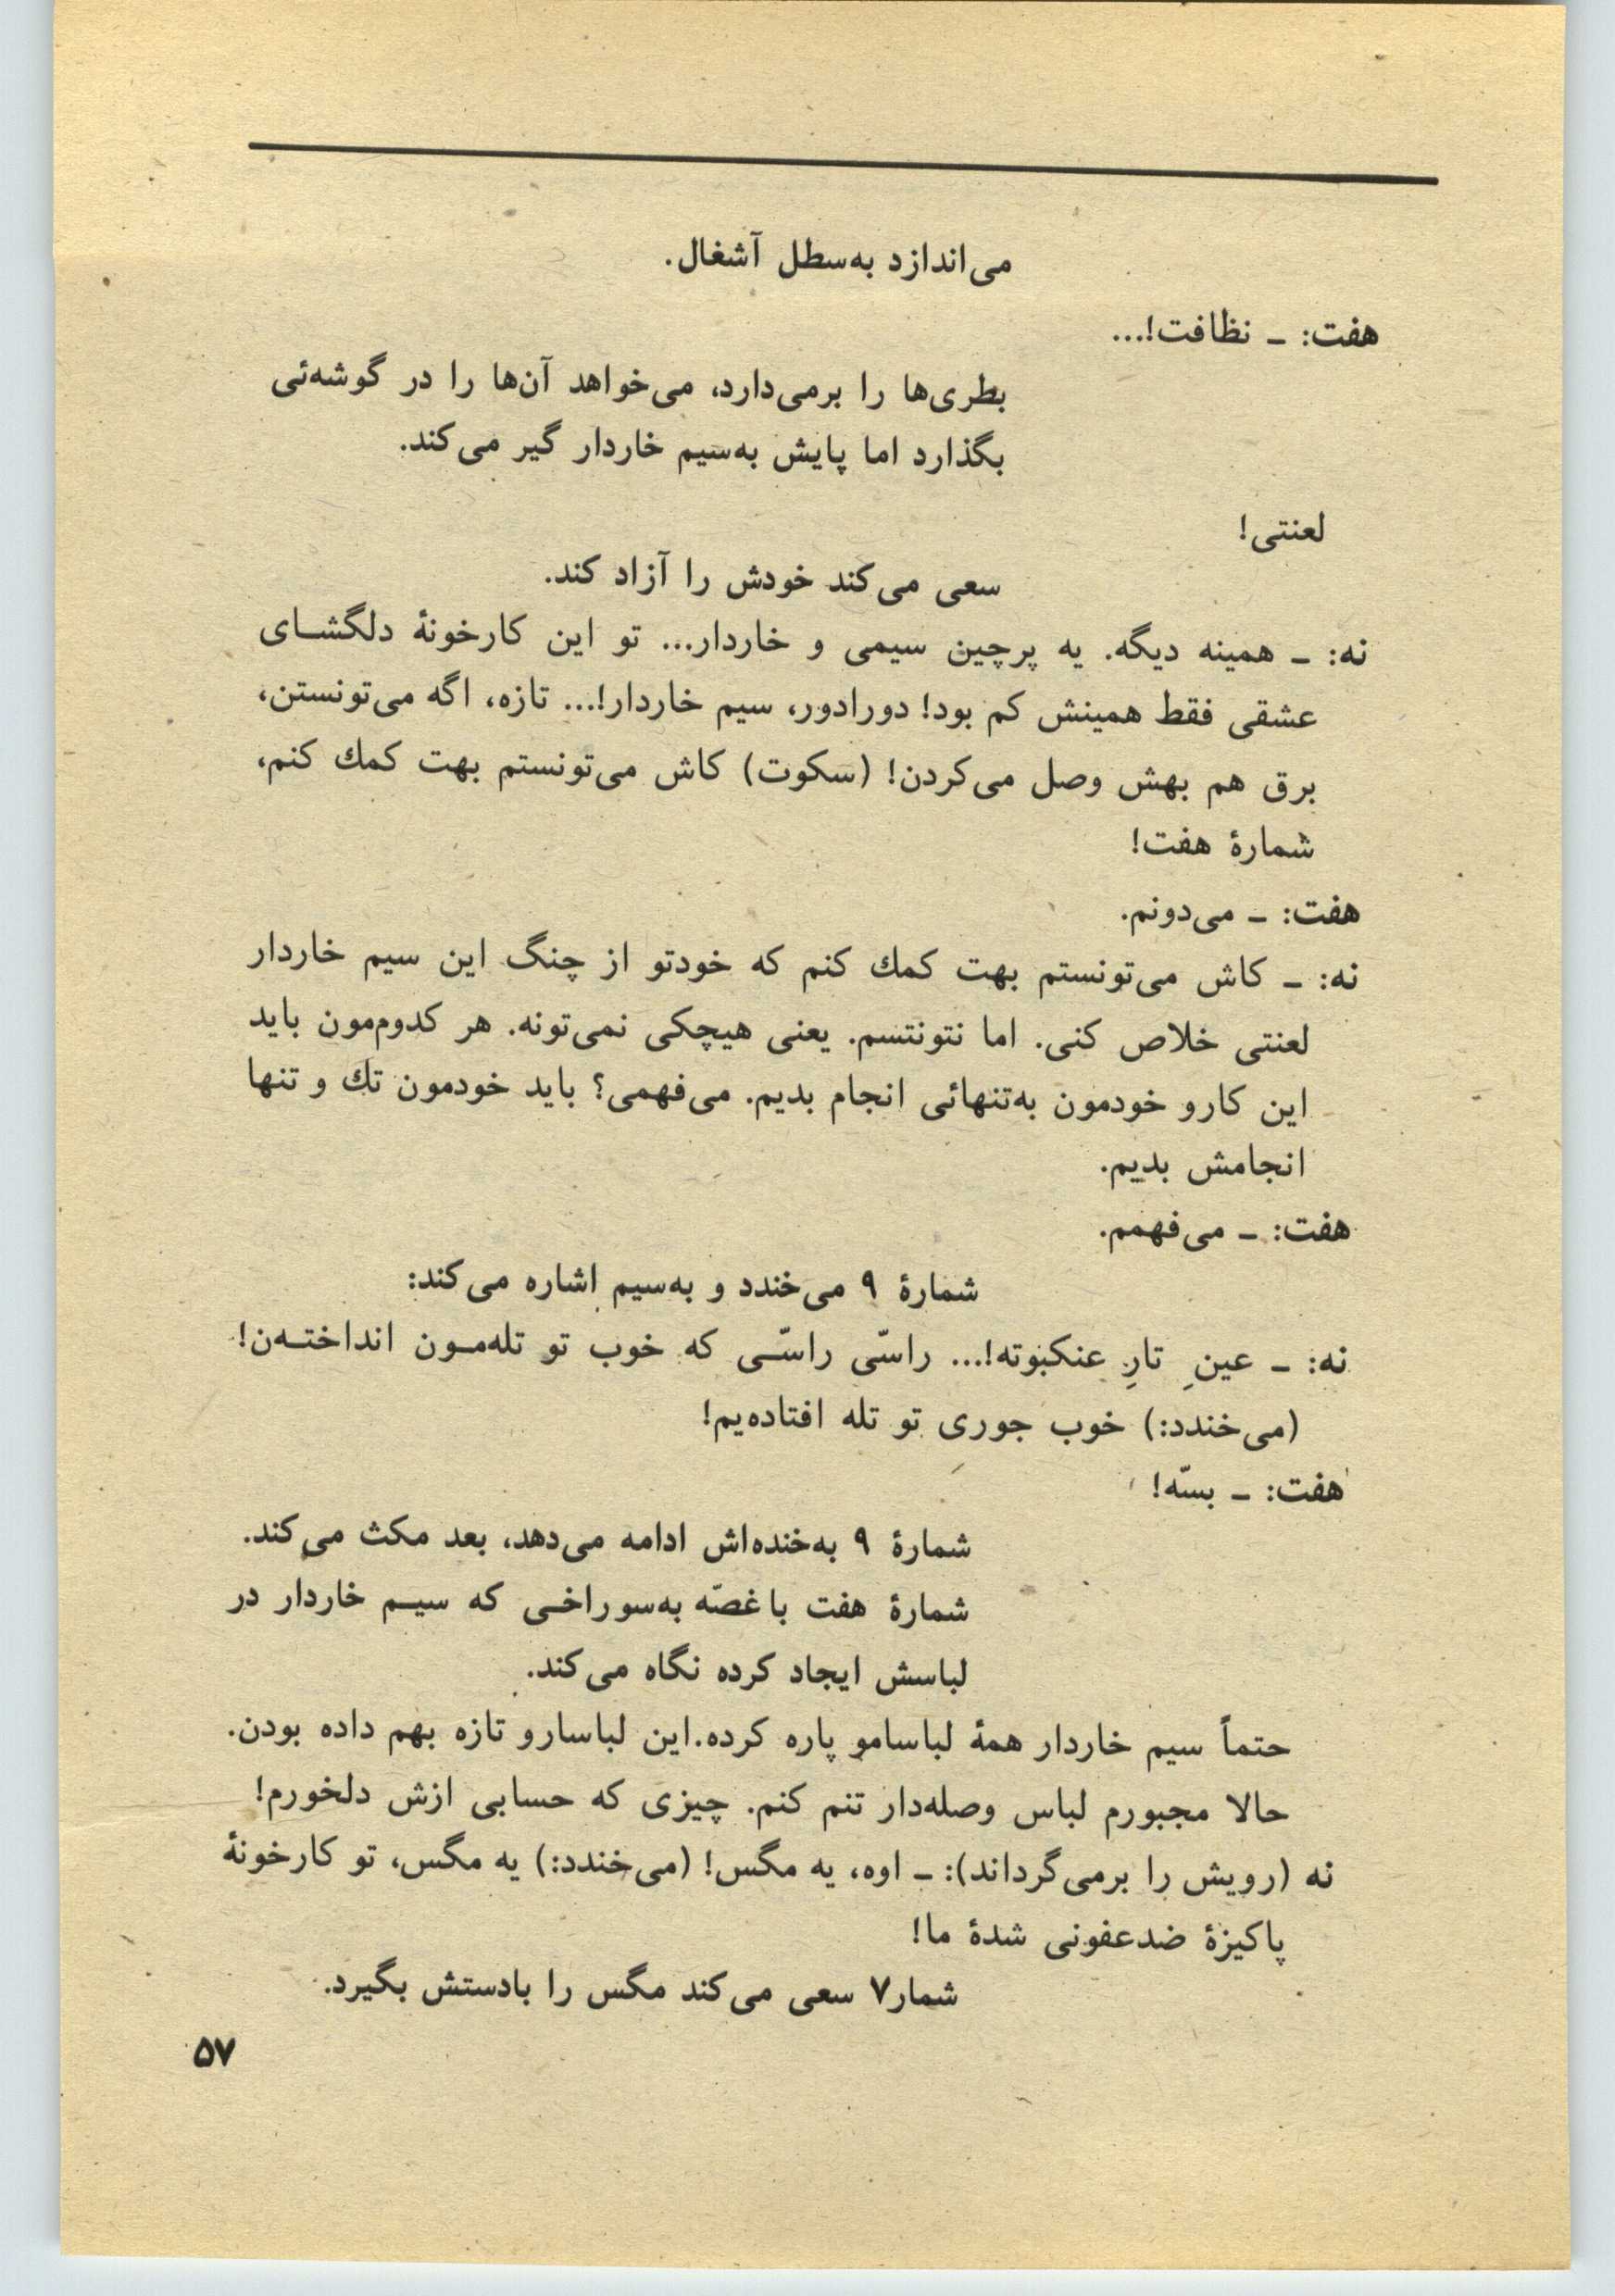 می‌اندازد به‌سطل آشغال.
هفت: ـ نظافت!...
بطری‌ها را برمی‌دارد، می‌خواهد آن‌ها را در گوشه‌ئی
بگذارد اما پایش به‌سیم خاردار گیر می‌کند.
لعنتی!
سعی می‌کند خودش را آزاد کند.
نه: ـ همینه دیگه. یه پرچین سیمی و خاردار... تو این کارخونهٔ دلگشـای
عشقی فقط همینش کم بود! دورادور، سیم خاردار!... تازه، اگه می‌تونستن،
برق هم بهش وصل می‌کردن! (سکوت) کاش می‌تونستم بهت کمك کنم،
شمارهٔ هفت!
هفت: ـ می‌دونم.
نه: ـ کاش می‌تونستم بهت کمك کنم که خودتو از چنگ این سیم خاردار
لعنتی خلاص کنی. اما نتونتسم. یعنی هیچکی نمی‌تونه. هر کدوم‌مون باید
این کارو خودمون به‌تنهائی انجام بدیم. می‌فهمی؟ باید خودمون تك و تنها
انجامش بدیم.
هفت: ـ می‌فهمم.
شمارهٔ ۹ می‌خندد و به‌سیم اشاره می‌کند:
نه: ـ عینِ تارِ عنکبوته!... راسّی راسّـی که خوب تو تله‌مـون انداختـه‌ن!
(می‌خندد:) خوب جوری تو تله افتاده‌یم!
هفت: ـ بسّه!
شمارهٔ ۹ به‌خنده‌اش ادامه می‌دهد، بعد مکث می‌کند.
شمارهٔ هفت با غصّه به‌سوراخـی که سیـم خاردار در
لباسش ایجاد کرده نگاه می‌کند.
حتماً سیم خاردار همهٔ لباسامو پاره کرده.این لباسارو تازه بهم داده بودن.
حالا مجبورم لباس وصله‌دار تنم کنم. چیزی که حسابی ازش دلخورم!
نه (رویش را برمی‌گرداند): ـ اوه، یه مگس! (می‌خندد:) یه مگس، تو کارخونهٔ
پاکیزهٔ ضدعفونی شدهٔ ما!
شمار۷ سعی می‌کند مگس را بادستش بگیرد.
۵۷